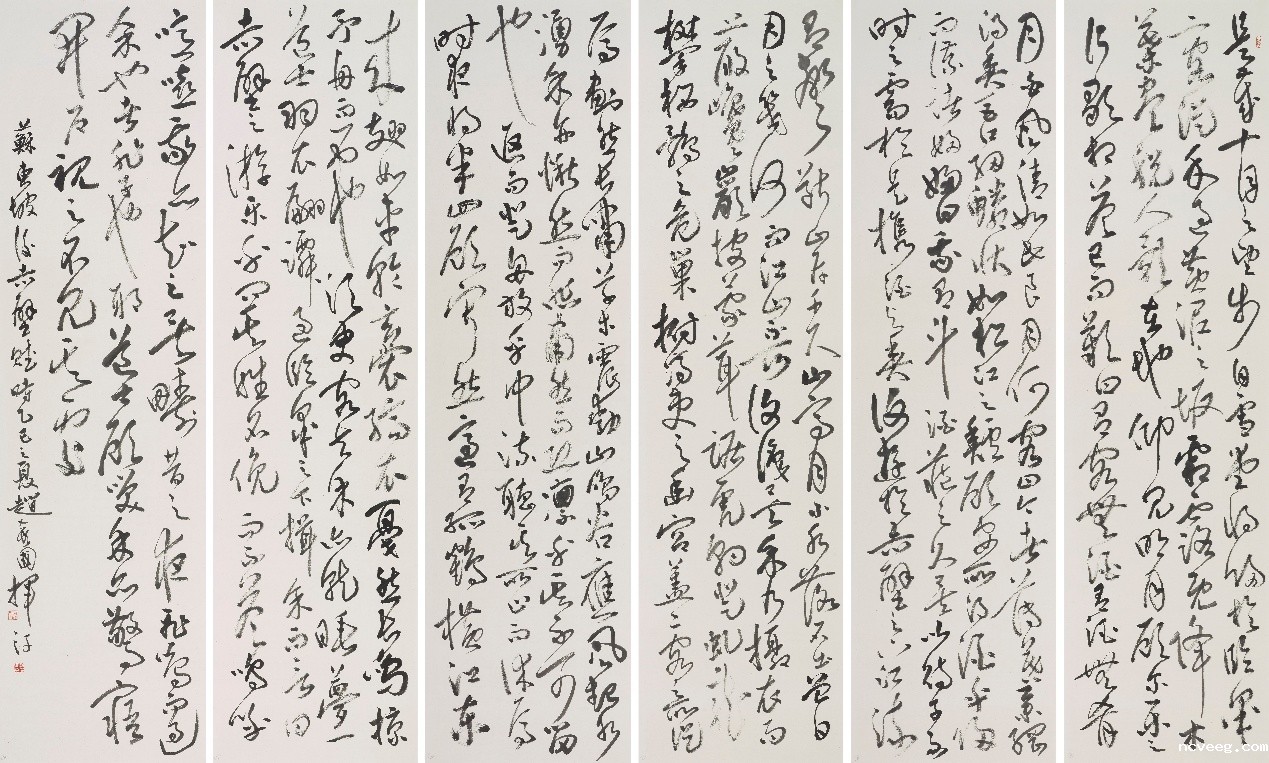 是歲十月之望步自雪堂將歸於臨皋
二客從余過黃泥之坂霜露既降木
葉盡脫人影在地仰見明月顧而樂之
行歌相答已而歎曰有客無酒有酒無肴
月白風清如此良夜何客曰今者薄暮舉網
得魚巨口細鱗狀如松江之鱸顧安所得酒乎歸
而謀諸婦婦曰我有斗酒藏之久矣以待子不
時之需於是攜酒與魚復遊於赤壁之下江流
有聲斷岸千尺山高月小水落石出曾日
月之幾何而江山不可復識矣余乃攝衣而
上履巉巖披蒙茸踞虎豹登虬龍
攀栖鶻之危巢俯馮夷之幽宮蓋二客不能從
焉劃然長嘯草木震動山鳴谷應風起水
湧余亦悄然而悲肅然而恐凜乎其不可留
也返而登舟放乎中流聽其所止而休焉
時夜將半四顧寂然適有孤鶴橫江東
來翅如車輪玄裳縞衣戛然長鳴掠
予舟而西也須臾客去余亦就睡夢一
道士羽衣翩躚過臨皋之下揖余而言曰
赤壁之遊樂乎問其姓名俛而不答嗚呼
噫嘻我知之矣疇昔之夜飛鳴過
余也者非子也耶道士顧笑余亦驚寤
開戶視之不見其處
蘇東坡後赤壁賦時乙巳之夏趙國揮汗
ncveeg.com